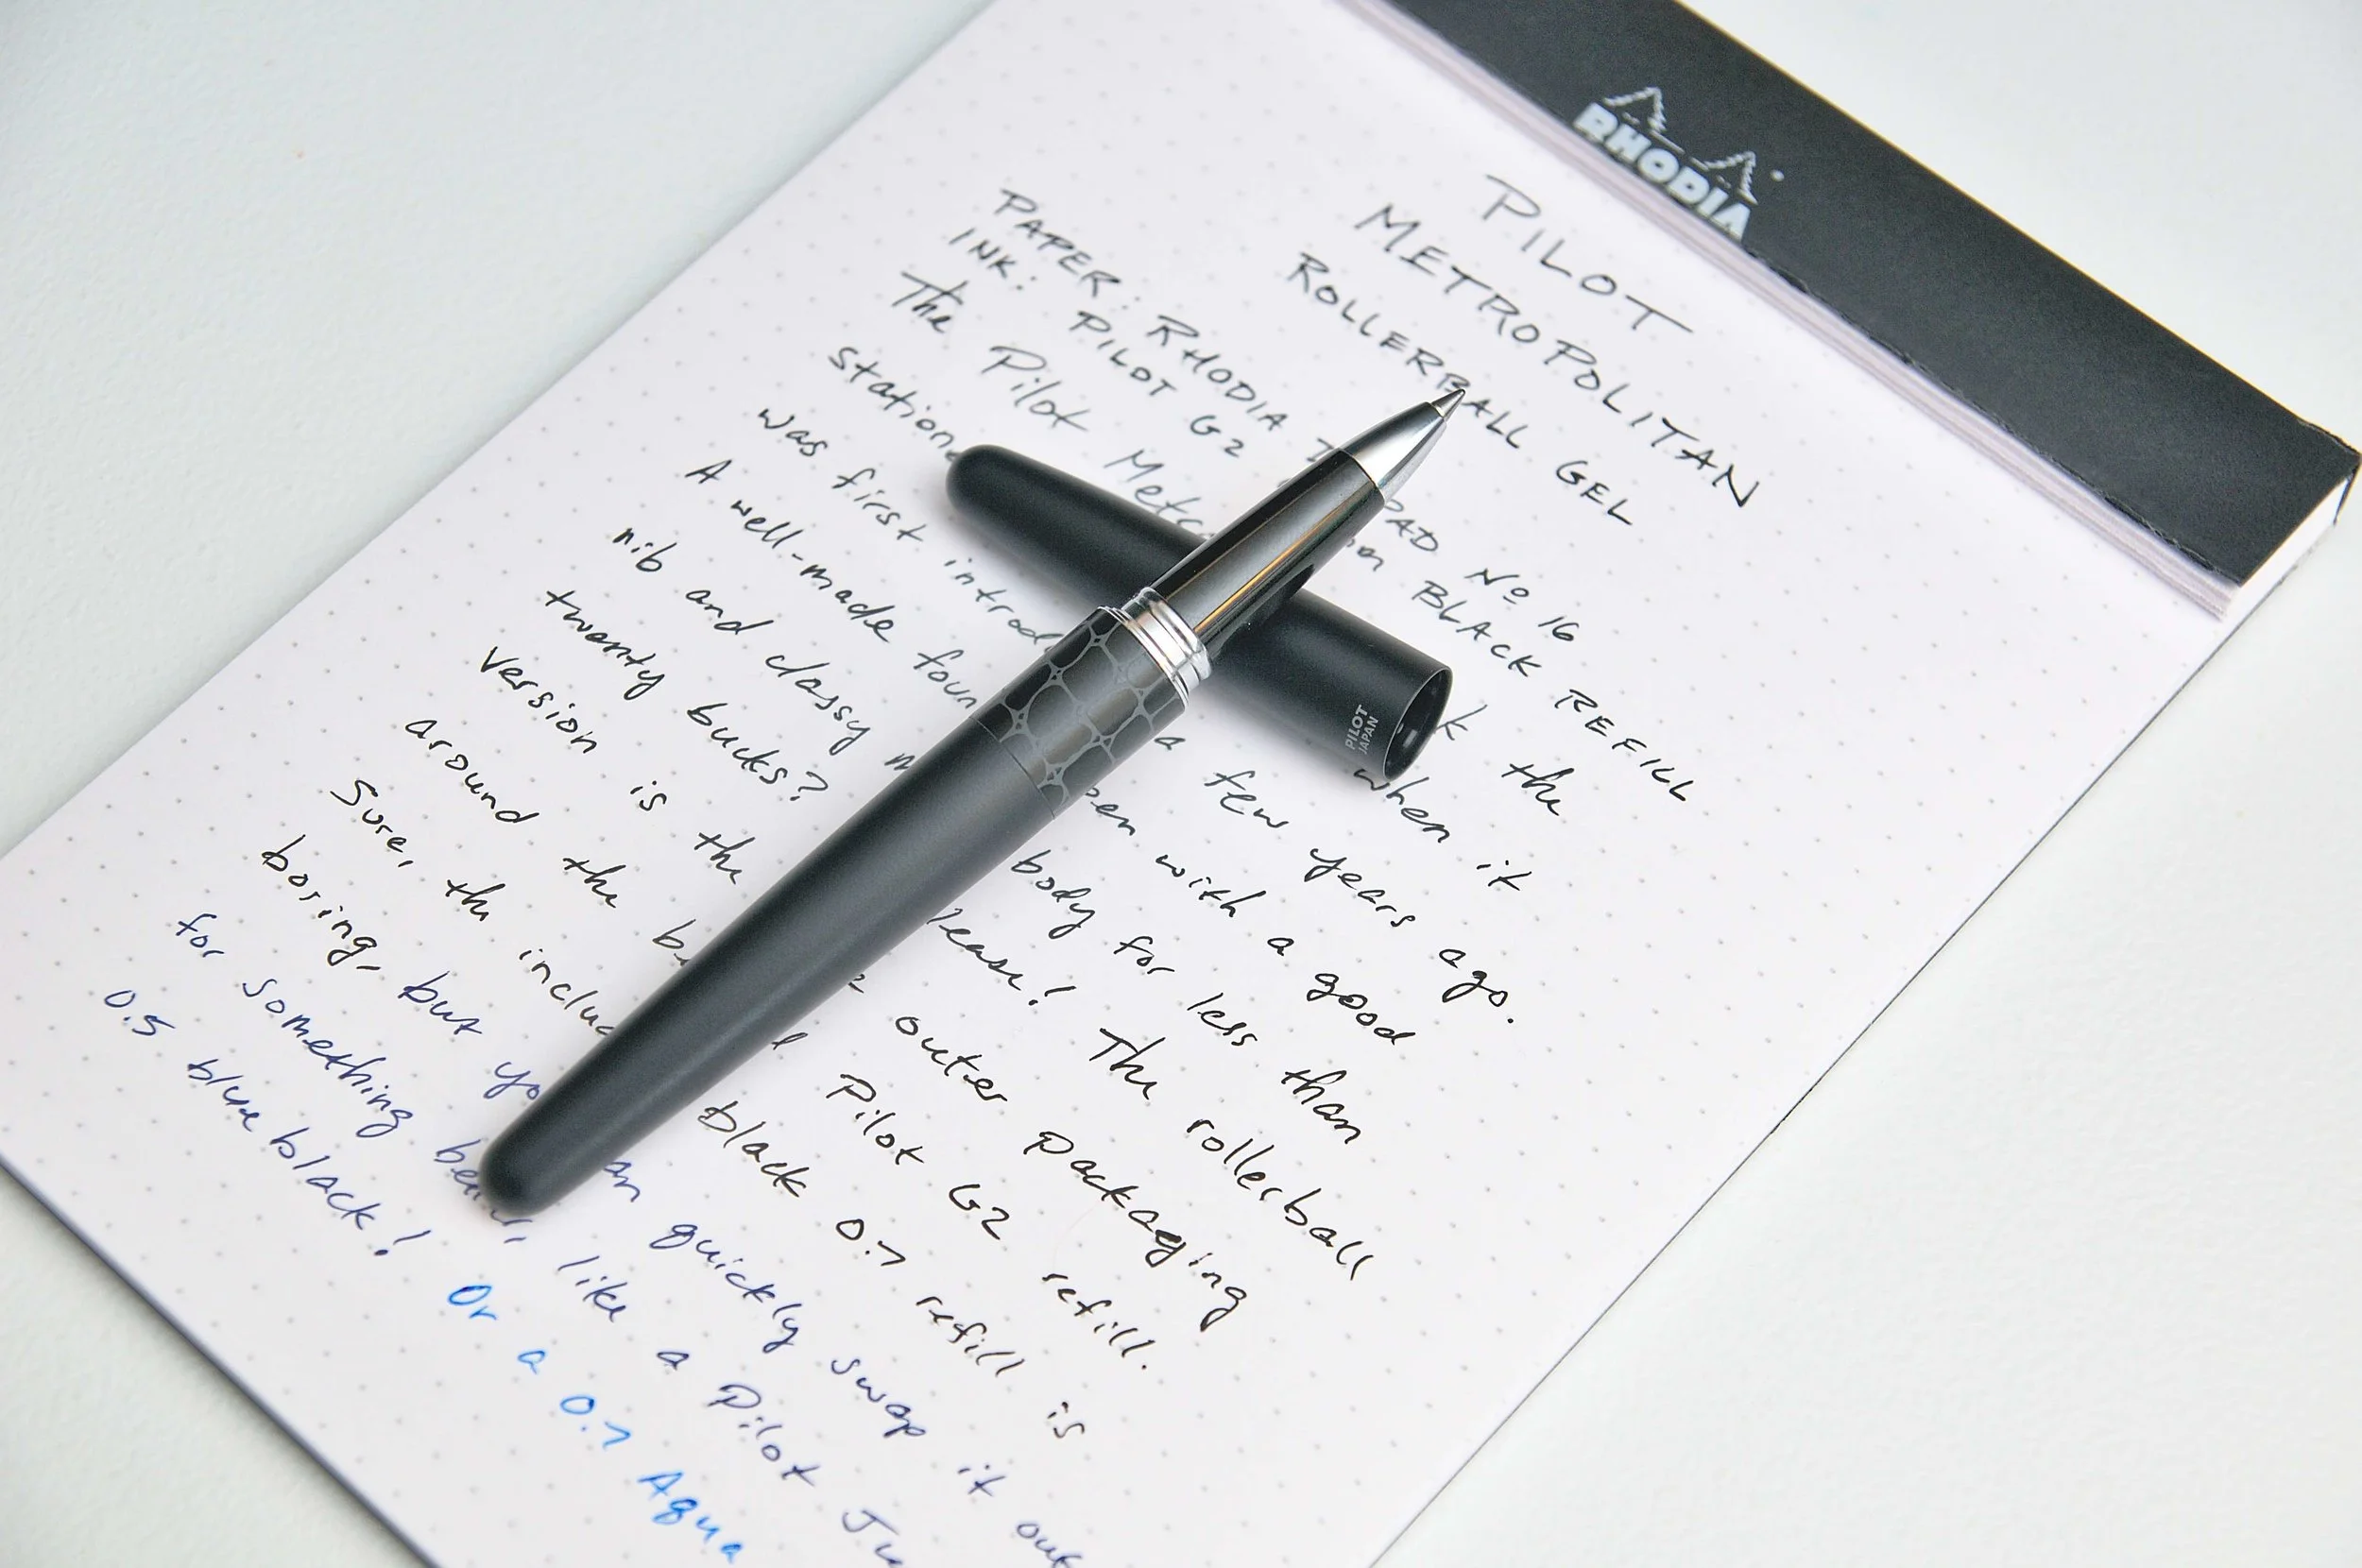 RHODIA
PILOT
METROPOLITAN
ROLLERBALL GEL
PAPER: RHODIA PAD Nº 16
INK: PILOT G2 BLACK REFILL
The Pilot the
when it
was first a few years ago.
A well-made pen with a good
nib and classy body for less than
twenty bucks? The rollerball
version is the outer packaging
around the Pilot G2 refill.
Sure, the black 0.7 refill is
boring, but quickly swap it out
for something like a Pilot
0.5 blue black! Or a 0.7 Aqua
PILOT
JAPAN